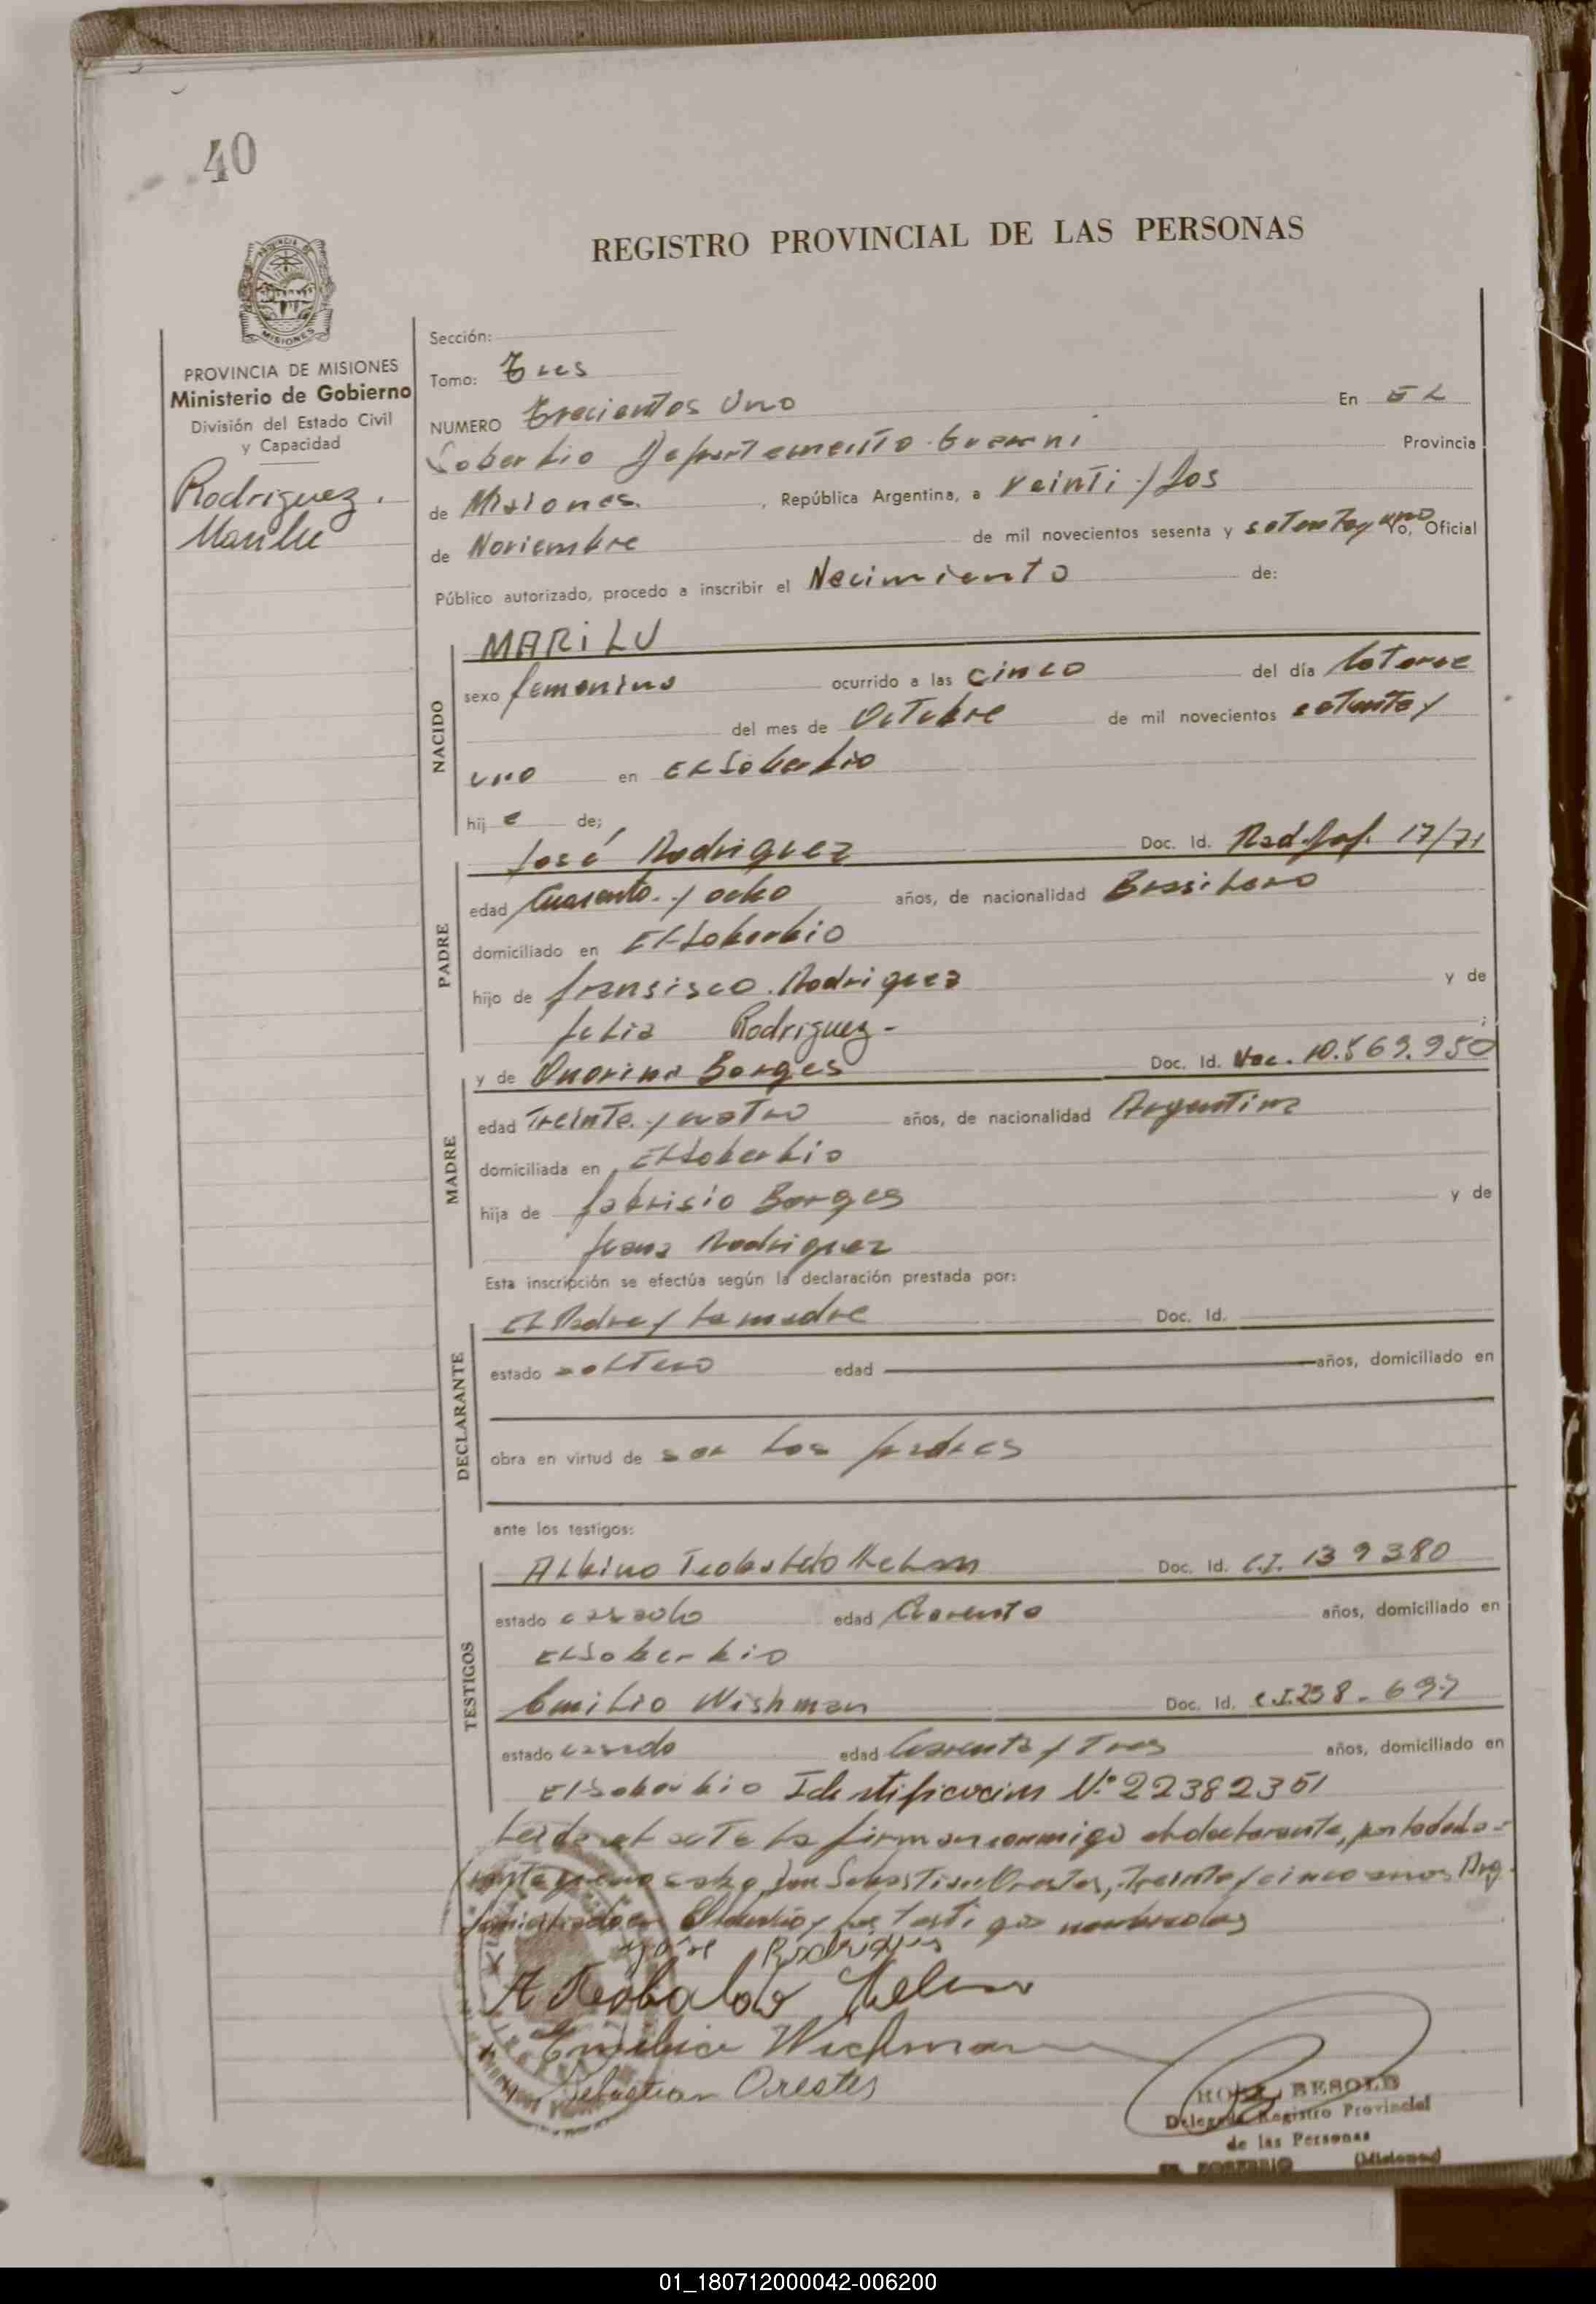 40
REGISTRO PROVINCIAL DE LAS PERSONAS
PROVINCIA DE MISIONES
Ministerio de Gobierno
División del Estado Civil
y Capacidad
Rodriguez.
Marilu
Sección:
Tomo: Tres
NUMERO Trecientos Uno En EL
Soberbio Departamento Guarani Provincia
de Misiones. , República Argentina, a Veinti y dos
de Noviembre de mil novecientos sesenta y setenta y uno Yo, Oficial
Público autorizado, procedo a inscribir el Nacimiento de:
NACIDO
MARiLU
sexo femenino ocurrido a las cinco del día Catorce
del mes de Octubre de mil novecientos setenta y
uno en EL Soberbio
hij a de;
PADRE
José Rodriguez Doc. Id. Rad. 17/71
edad Cuarenta y ocho años, de nacionalidad Brasilero
domiciliado en El Soberbio
hijo de fransisco Rodriguez y de
Rodriguez - ;
MADRE
y de Borges Doc. Id. 10.569.950
edad Treinta y cuatro años, de nacionalidad Argentina
domiciliada en El Soberbio
hija de fabrisio Borges y de
Juana Rodriguez
Esta inscripción se efectúa según la declaración prestada por:
DECLARANTE
El Padre y la madre Doc. Id.
estado soltero edad años, domiciliado en
obra en virtud de ser los padres
ante los testigos:
TESTIGOS
Albino Teobaldo Doc. Id. C.I. 139380
estado casado edad Cuarenta años, domiciliado en
El Soberbio
Emilio Wishman Doc. Id. C.I. 238-697
estado casado edad Cuarenta y Tres años, domiciliado en
El Soberbio Identificacion N.° 22382351
Leida el acta la firman conmigo el declarante, por la
Sebastian Orestes, treinta y cinco anos Arg.
domiciliado en El Soberbio y los testigos nombrados
José Rodrigues
A Teobaldo
Emilio Wichman
Sebastian Orestes
BESOLD
Delegado Registro Provincial
de las Personas
EL SOBERBIO (Misiones)
01_180712000042-006200